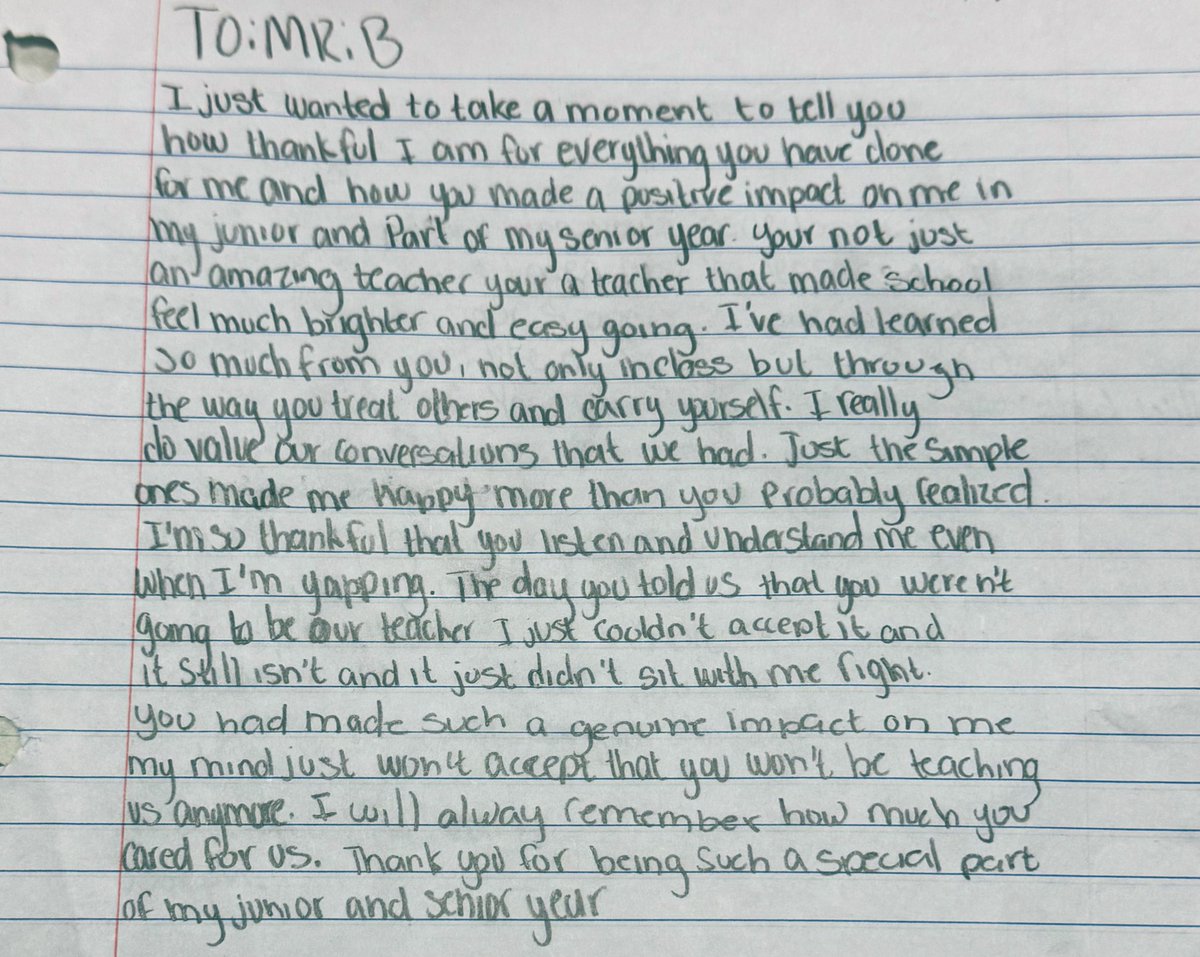 TO: MR: B
I just wanted to take a moment to tell you
how thankful I am for everything you have done
for me and how you made a positive impact on me in
my junior and Part of my senior year. Your not just
an amazing teacher your a teacher that made school
feel much brighter and easy going. I've had learned
so much from you, not only in class but through
the way you treat others and carry yourself. I really
do value our conversations that we had. Just the simple
ones made me happy more than you probably realized.
I'm so thankful that you listen and understand me even
when I'm yapping. The day you told us that you weren't
going to be our teacher I just couldn't accept it and
it still isn't and it just didn't sit with me right.
you had made such a genuine impact on me
my mind just won't accept that you won't be teaching
us anymore. I will alway remember how much you
cared for us. Thank you for being such a special part
of my junior and senior year